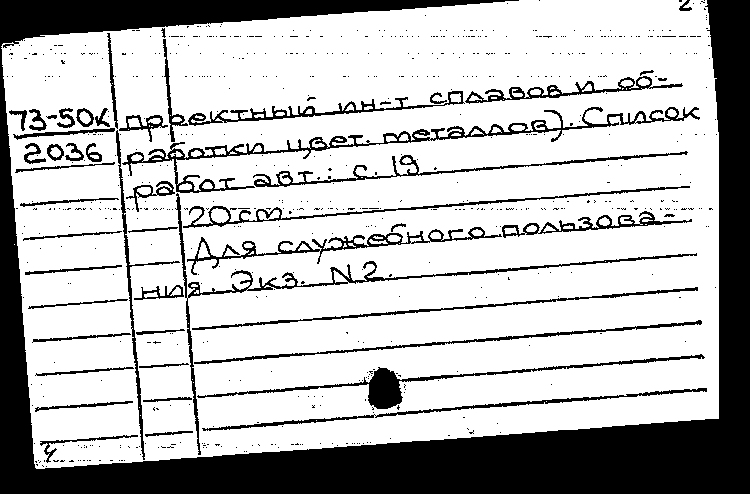 2
73-50к проектный ин-т сплавов и об-
2036 работки цвет. металлов). Список
работ авт.: с. 19.
20 cm.
Для служебного пользова-
ния. Экз. N2.